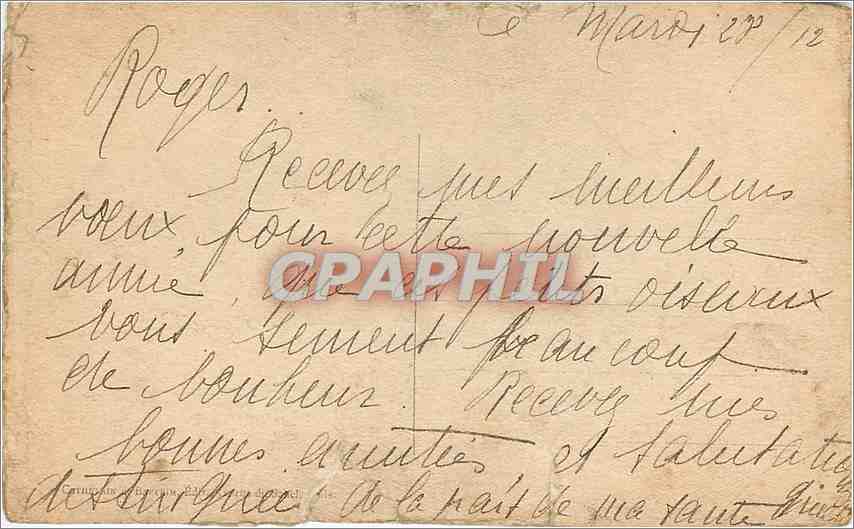 Mardi 28/12
Roger
Recevez mes meilleurs
vœux pour cette nouvelle
année, que ces petits oiseaux
CPAPHIL
vous sement beaucoup
de bonheur. Recevez mes
bonnes amitiés et salutation
de la part de ma tante